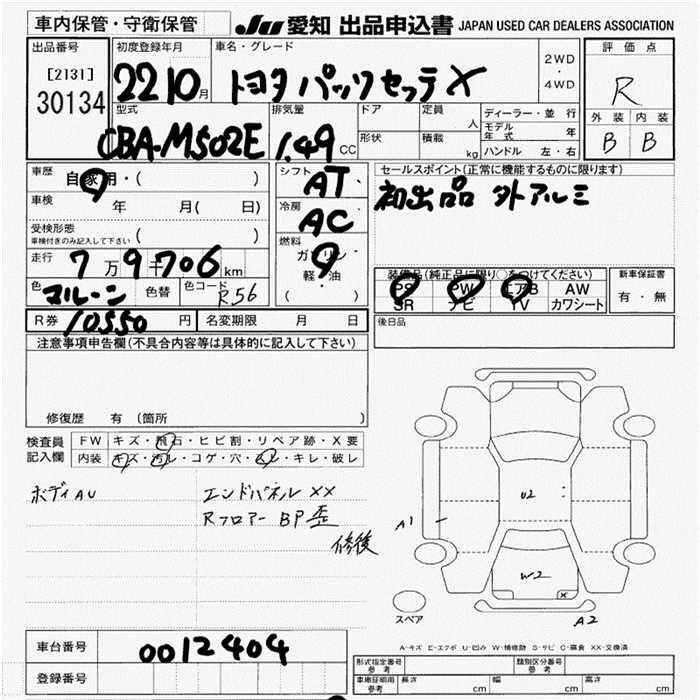 車内保管・守衛保管
JU 愛知 出品申込書 JAPAN USED CAR DEALERS ASSOCIATION
出品番号
[2131]
30134
初度登録年月
22 10月
車名・グレード
トヨタ パッソセッテ X
2WD
・
4WD
評価点
R
外装 内装
B B
型式
CBA-M502E
排気量
1.49 CC
ドア
形状
定員
人
積載
kg
ディーラー・並行
モデル年式 年
ハンドル 左・右
車歴
自家用・( )
車検 年 月( 日)
受検形態
車検付きのみ記入して下さい ( )
走行
7万9千706km
色
マルーン
色替
色コード
R56
R券 10550 円
名変期限 月 日
シフト
AT
冷房
AC
燃料
ガソリン
軽・油
( )
セールスポイント(正常に機能するものに限ります)
初出品 外アルミ
装備品(純正品に限り○をつけてください)
PS PW エアB AW
SR ナビ TV カワシート
新車保証書
有・無
後日品
注意事項申告欄(不具合内容等は具体的に記入して下さい)
修復歴 有 (箇所 )
検査員記入欄
FW キズ・飛石・ヒビ割・リペア跡・X要
内装 キズ・汚レ・コゲ・穴・ムレ・キレ・破レ
ボディAU
エンドパネルXX
Rフロアー BP歪
修後
U2
A1
W2
X
A2
スペア
A-キズ E-エクボ U-凹み W-補修跡 S-サビ C-腐食 XX-交換済
車台番号 0012404
登録番号
形式指定番号
参考
類別区分番号
参考
車庫証明用
参考
長さ cm 幅 cm 高さ cm